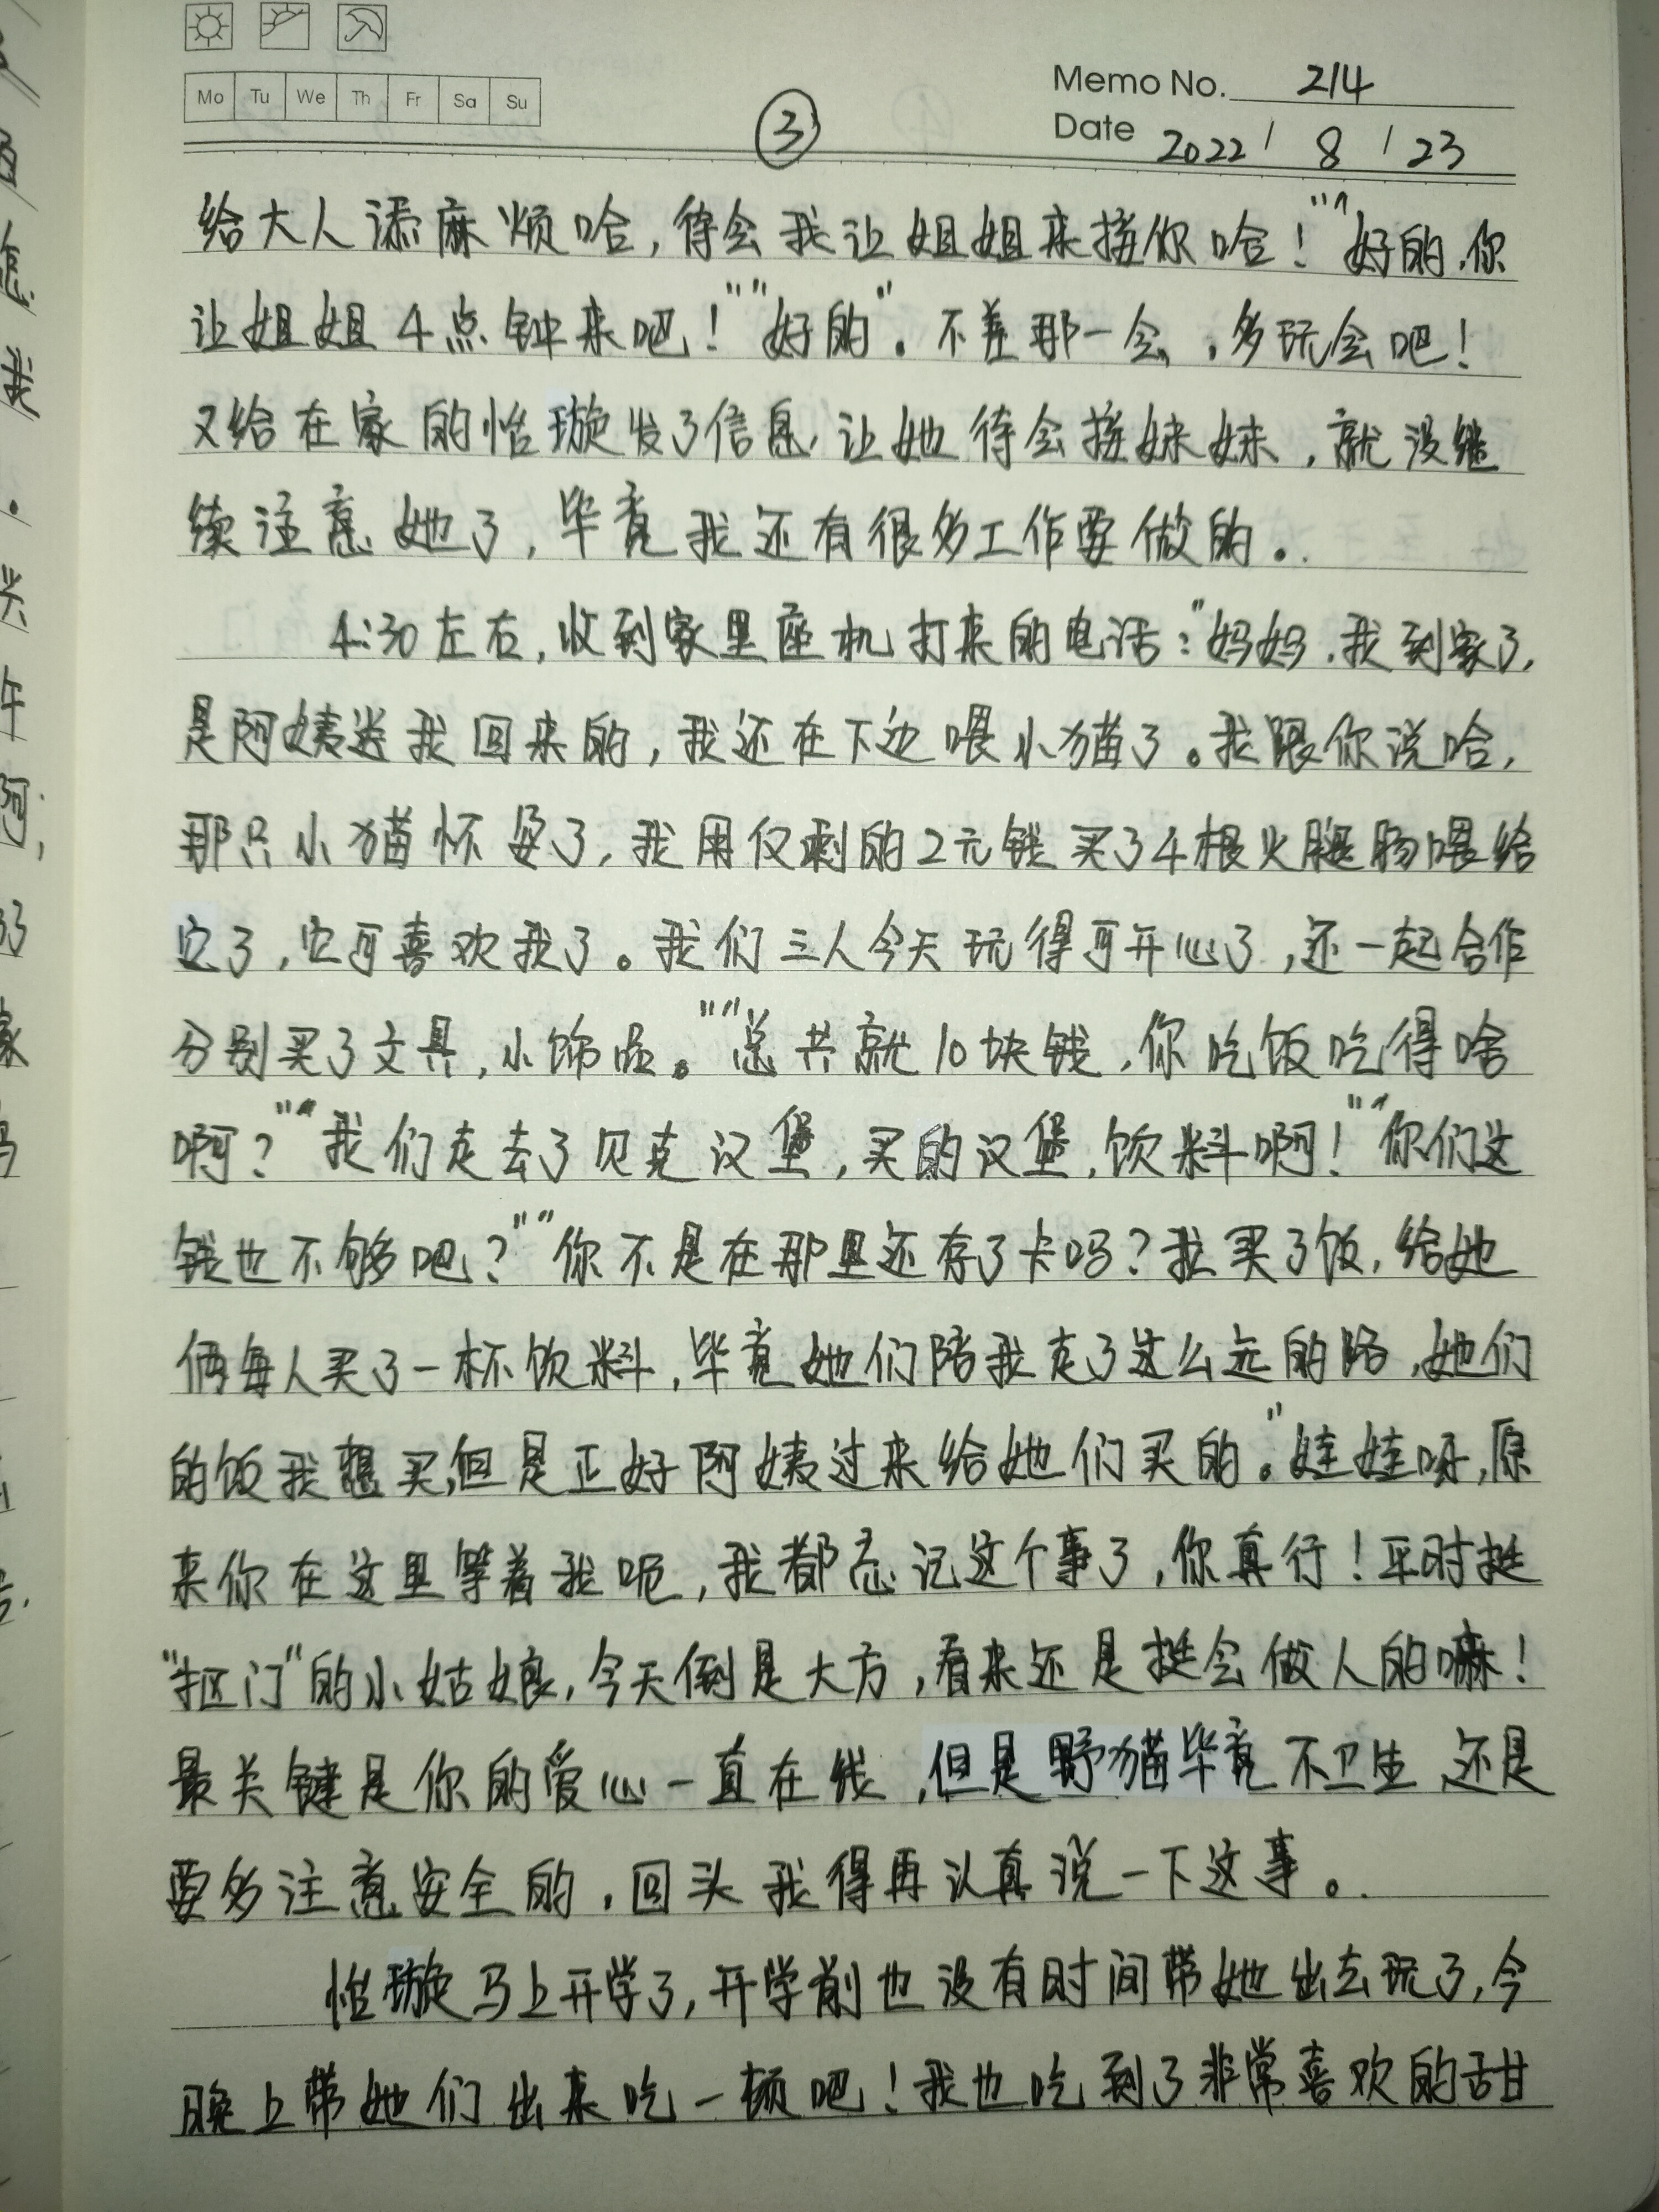 Mo Tu We Th Fr Sa Su
③
Memo No. 214
Date 2022 / 8 / 23
给大人添麻烦哈,待会我让姐姐来接你哈!""好的,你
让姐姐4点钟来吧!""好的"。不差那一会,多玩会吧!
又给在家的怡璇发了信息,让她待会接妹妹,就没继
续注意她了,毕竟我还有很多工作要做的。
4:30左右,收到家里座机打来的电话:"妈妈,我到家了,
是阿姨送我回来的,我还在下边喂小猫了。我跟你说哈,
那只小猫怀孕了,我用仅剩的2元钱买了4根火腿肠喂给
它了,它可喜欢我了。我们三人今天玩得可开心了,还一起合作
分别买了文具,小饰品。""总共就10块钱,你吃饭吃得啥
啊?""我们走去了贝克汉堡,买的汉堡,饮料啊!""你们这
钱也不够吧?""你不是在那里还存了卡吗?我买了饭,给她
俩每人买了一杯饮料,毕竟她们陪我走了这么远的路,她们
的饭我想买,但是正好阿姨过来给她们买的。"娃娃呀,原
来你在这里等着我呢,我都忘记这个事了,你真行!平时挺
"抠门"的小姑娘,今天倒是大方,看来还是挺会做人的嘛!
最关键是你的爱心一直在线,但是野猫毕竟不卫生,还是
要多注意安全的,回头我得再认真说一下这事。
怡璇马上开学了,开学前也没有时间带她出去玩了,今
晚上带她们出来吃一顿吧!我也吃到了非常喜欢的甜